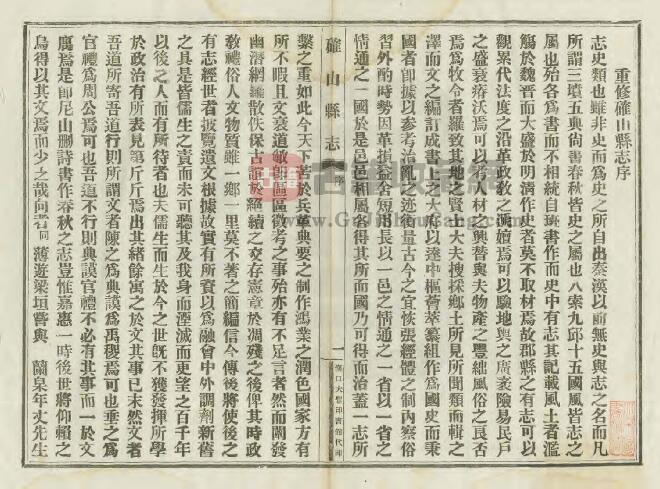 重修確山縣志序
志史類也雖非史而爲史之所自出秦漢以前無史與志之名而凡
所謂三墳五典尙書春秋皆史之屬也八索九邱十五國風皆志之
屬也殆各爲書而不相統自
書作而史中有志其記載風土者濫
觴於魏晉而大盛於明淸作史者莫不取材焉故郡縣之有志可以
觀累代法度之沿革政敎之演
焉可以驗地輿之廣袤險易民戶
之盛衰瘠沃焉可以考人材之興替與夫物產之豐絀風俗之良否
焉爲牧令者羅致其地之賢士大夫搜採鄉土所見所聞類而輯之
澤而文之編訂成書上之大府以達中樞薈萃纂組作爲國史而秉
國者卽據以參考治亂之迹衡量古今之宜恢張經體之制內察俗
習外酌時勢因革損益舍短用長以一邑之情通之一省以一省之
情通之一國於是邑邑相屬各得其所而國乃可得而治蓋一志所
確山縣志
序
一
漢口大聖印書館代印
繫之重如此今天下
著於兵革典要之制作鴻業之潤色國家方有
所不暇且文衰道敝卽區區徵考之事殆亦有不足言者然而闡發
幽潛網編散佚保古訓於絕續之交存憲章於凋殘之後俾其時政
敎禮俗人文物質雖一鄕一里莫不著之簡編信今傳後將使後之
有志經世者披覽遺文根據故實有所資以爲融會中外調劑新舊
之具是皆儒生之責而未可聽其及我身而湮滅而更望之百千年
以後之人而有所待者也夫儒生而生於今之世旣不獲發揮所學
於政治有所表見第斤斤焉出其緖餘寓之於文其事已末然文者
吾道所寄吾道行則所謂文者陳之爲典謨爲禹稷焉可也垂之爲
官禮爲周公焉可也吾道不行則典謨官禮不必有其事而一於文
寓焉是卽尼山刪詩書作春秋之志豈惟嘉惠一時後世將仰賴之
烏得以其文焉而少之哉向者同
薄遊梁垣嘗與
蘭泉年丈先生